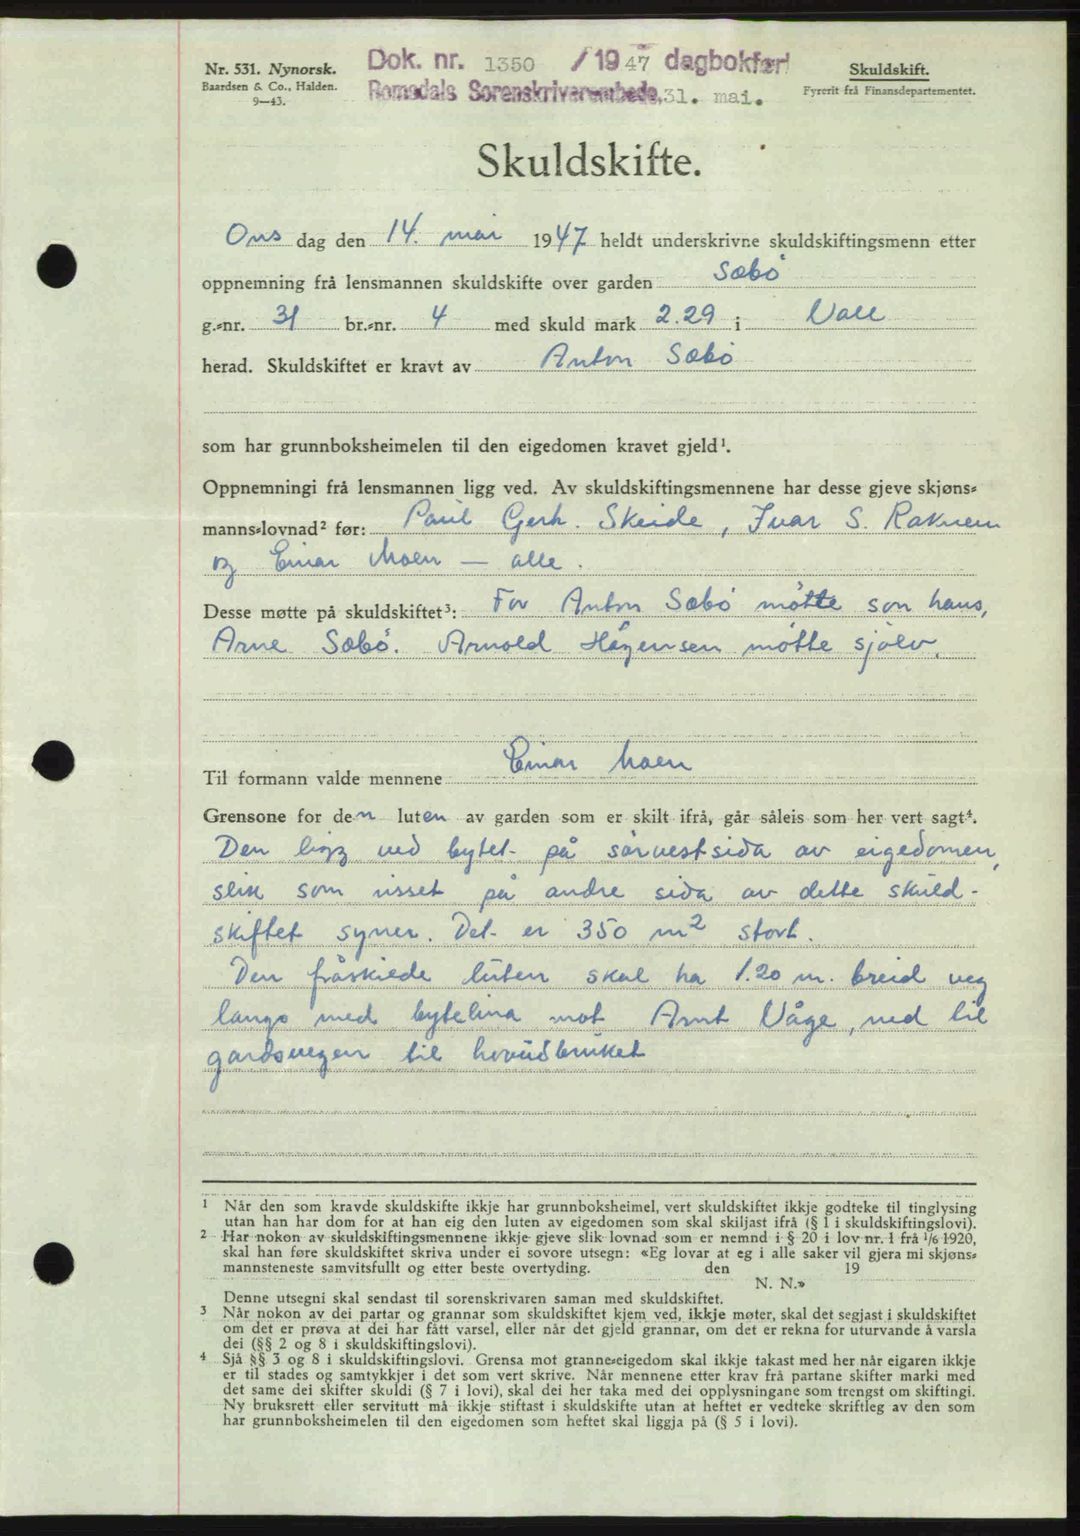 Nr. 531. Nynorsk.
Baardsen & Co., Halden.
9—43.
Dok. nr. 1350 / 1947 dagbokført
Romsdals Sorenskriverembede, 31. mai.
Skuldskift.
Fyrerit frå Finansdepartementet.
Skuldskifte.
Ons dag den 14. mai 1947 heldt underskrivne skuldskiftingsmenn etter
oppnemning frå lensmannen skuldskifte over garden Sæbö
g.-nr. 31 br.-nr. 4 med skuld mark 2.29 i Voll
herad. Skuldskiftet er kravt av Anton Sæbö
som har grunnboksheimelen til den eigedomen kravet gjeld¹.
Oppnemningi frå lensmannen ligg ved. Av skuldskiftingsmennene har desse gjeve skjøns-
manns-lovnad² før: Paul Gerh. Skeide, Ivar S. Raknem
og Einar Moen — alle.
Desse møtte på skuldskiftet³: For Anton Sæbö møtte son hans,
Arne Sæbö. Arnold Hågensen møtte sjölv.
Til formann valde mennene Einar Moen
Grensone for den luten av garden som er skilt ifrå, går såleis som her vert sagt⁴.
Den ligg ved bytet på sörvestsida av eigedomen,
slik som risset på andre sida av dette skuld-
skiftet syner. Det er 350 m² stort.
Den fråskilde luten skal ha 1.20 m. breid veg
langs med bytelina mot Arnt Våge, ned til
gardsvegen til hovudbruket
¹ Når den som kravde skuldskifte ikkje har grunnboksheimel, vert skuldskiftet ikkje godteke til tinglysing
utan han har dom for at han eig den luten av eigedomen som skal skiljast ifrå (§ 1 i skuldskiftingslovi).
² Har nokon av skuldskiftingsmennene ikkje gjeve slik lovnad som er nemnd i § 20 i lov nr. 1 frå 1/6 1920,
skal han føre skuldskiftet skriva under ei sovore utsegn: «Eg lovar at eg i alle saker vil gjera mi skjøns-
mannsteneste samvitsfullt og etter beste overtyding. den 19
N. N.»
Denne utsegni skal sendast til sorenskrivaren saman med skuldskiftet.
³ Når nokon av dei partar og grannar som skuldskiftet kjem ved, ikkje møter, skal det segjast i skuldskiftet
om det er prøva at dei har fått varsel, eller når det gjeld grannar, om det er rekna for uturvande å varsla
dei (§§ 2 og 8 i skuldskiftingslovi).
⁴ Sjå §§ 3 og 8 i skuldskiftingslovi. Grensa mot granne-eigedom skal ikkje takast med her når eigaren ikkje
er til stades og samtykkjer i det som vert skrive. Når mennene etter krav frå partane skifter marki med
det same dei skifter skuldi (§ 7 i lovi), skal dei her taka med dei opplysningane som trengst om skiftingi.
Ny bruksrett eller servitutt må ikkje stiftast i skuldskifte utan at heftet er vedteke skriftleg av den som
har grunnboksheimelen til den eigedomen som heftet skal liggja på (§ 5 i lovi).